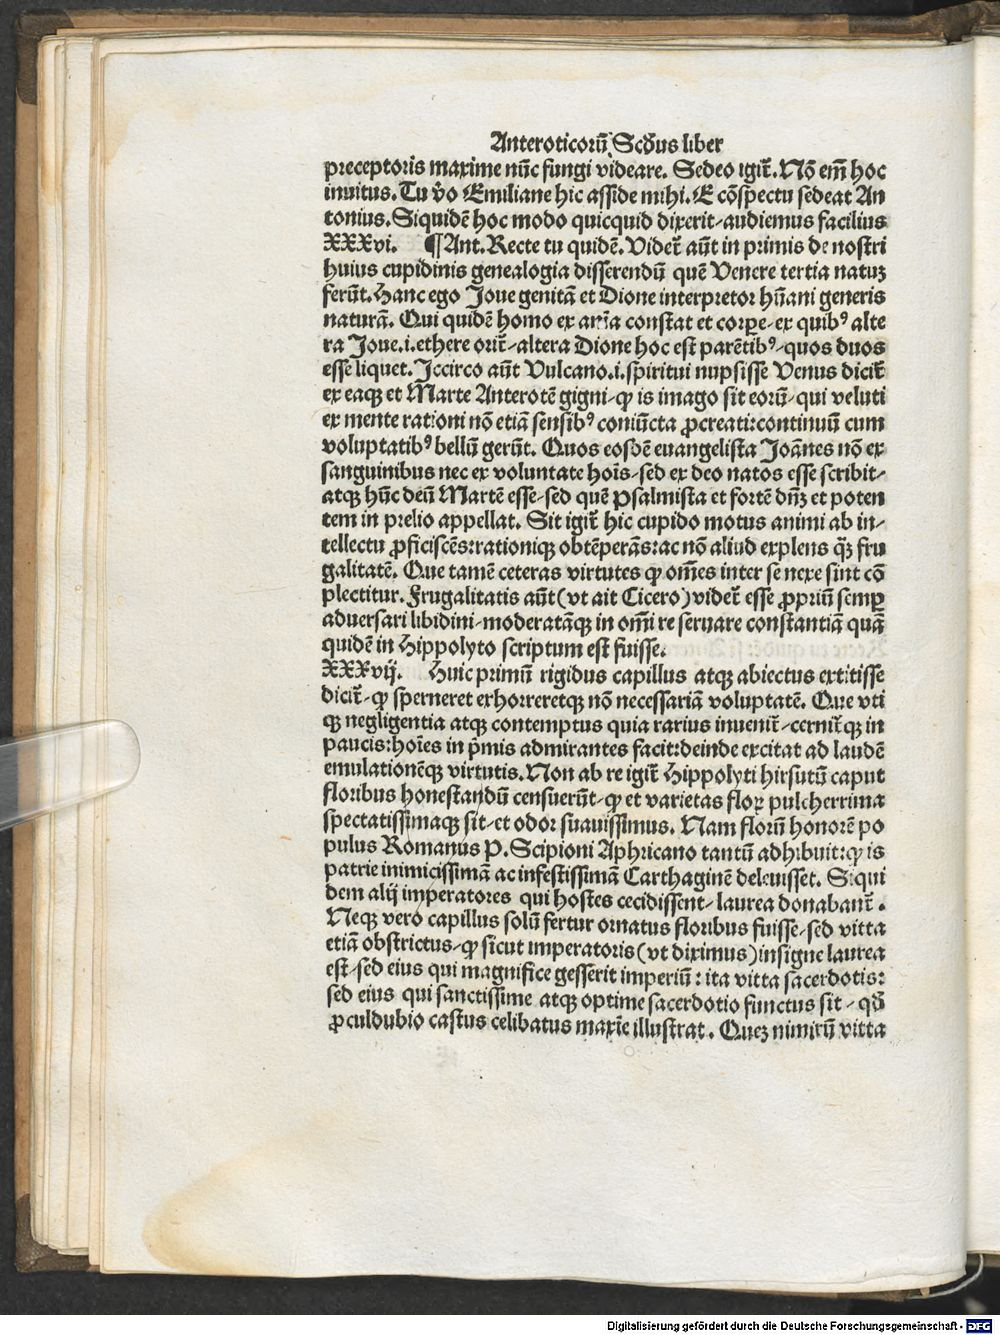 Anteroticorū Scḋus liber
preceptoris maxime nūc fungi videare. Sedeo igit̄. Nō em̄ hoc
inuitus. Tu v̊o Emiliane hic asside mihi. E cōspectu sedeat An
tonius. Siquidē hoc modo quicquid dixerit-audiemus facilius
XXXvi. ¶ Ant. Recte tu quidē. Videt̄ aūt in primis de nostri
huius cupidinis genealogia disserendū quē Venere tertia natuꝫ
ferūt. Hanc ego Joue genitā et Dione interpretor hūani generis
naturā. Qui quidē homo ex aīa constat et corpe-ex quibꝰ alte
ra Joue.i.ethere orit̄-altera Dione hoc est parētibꝰ-quos duos
esse liquet. Iccirco aūt Vulcano.i.spiritui nupsisse Venus dicit̄
ex eaqꝫ et Marte Anterotē gigni-ꝙ is imago sit eorū-qui veluti
ex mente rationi nō etiā sensibꝰ coniūcta ꝓcreati:continuū cum
voluptatibꝰ bellū gerūt. Quos eosdē euangelista Joānes nō ex
sanguinibus nec ex voluntate hoīs-sed ex deo natos esse scribit-
atqꝫ hūc deū Martē esse-sed quē Psalmista et fortē dn̄ꝫ et poten
tem in prelio appellat. Sit igit̄ hic cupido motus animi ab in-
tellectu ꝓficiscēs:rationiqꝫ obtēperās:ac nō aliud explens q̄ꝫ fru
galitatē. Que tamē ceteras virtutes ꝙ om̄es inter se nexe sint cō
plectitur. Frugalitatis aūt (vt ait Cicero) videt̄ esse ꝓpriū semꝑ
aduersari libidini-moderatāqꝫ in om̄i re seruare constantiā quā
quidē in Hippolyto scriptum est fuisse.
XXXvij. Huic primū rigidus capillus atqꝫ abiectus extitisse
dicit̄-ꝙ sperneret exhorreretqꝫ nō necessariā voluptatē. Que vti
qꝫ negligentia atqꝫ contemptus quia rarius inuenit̄-cernit̄qꝫ in
paucis:hoīes in p̄mis admirantes facit:deinde excitat ad laudē
emulationēqꝫ virtutis. Non ab re igit̄ Hippolyti hirsutū caput
floribus honestandū censuerūt-ꝙ et varietas floꝝ pulcherrima
spectatissimaqꝫ sit-et odor suauissimus. Nam florū honorē po
pulus Romanus P. Scipioni Aphricano tantū adhibuit:ꝙ is
patrie inimicissimā ac infestissimā Carthaginē deleuisset. Siqui
dem alij imperatores qui hostes cecidissent-laurea donabant̄.
Neqꝫ vero capillus solū fertur ornatus floribus fuisse-sed vitta
etiā obstrictus-ꝙ sicut imperatoris (vt diximus) insigne laurea
est-sed eius qui magnifice gesserit imperiū: ita vitta sacerdotis:
sed eius qui sanctissime atqꝫ optime sacerdotio functus sit-qḋ
ꝓculdubio castus celibatus maxīe illustrat. Queꝫ nimirū vitta
Digitalisierung gefördert durch die Deutsche Forschungsgemeinschaft - DFG